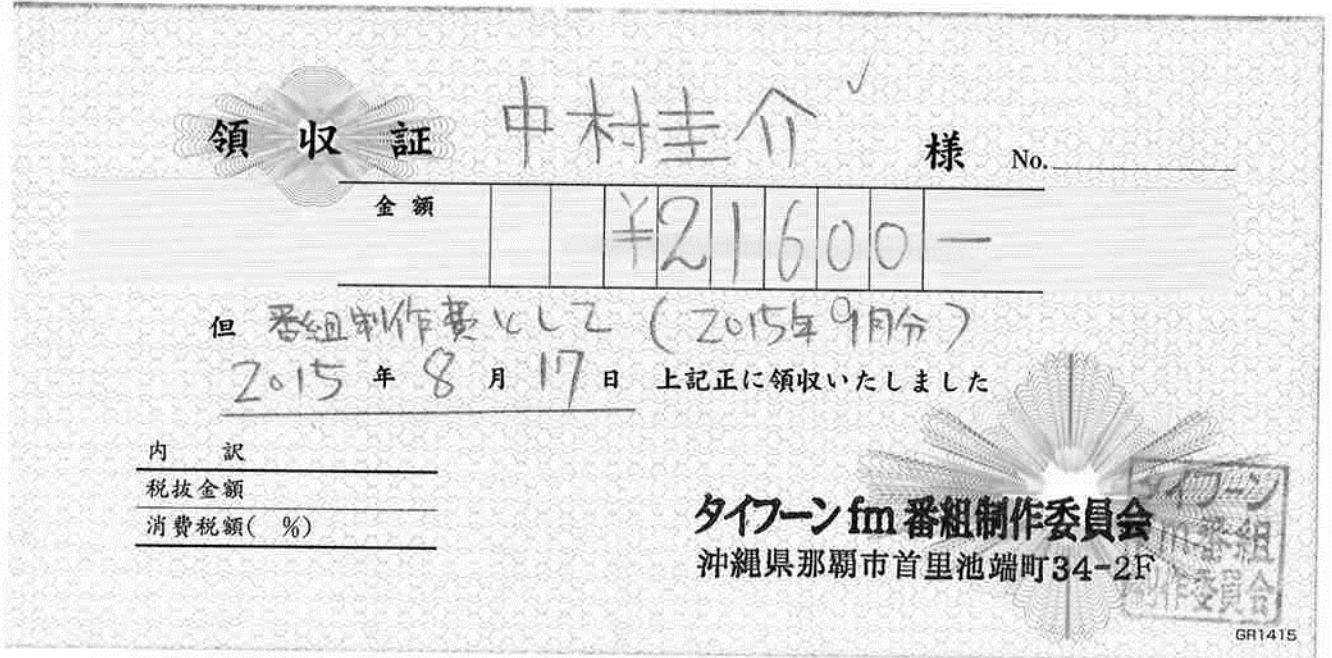 領 収 証 中村圭介 様 No.
金 額 ¥21600―
但 番組制作費として (2015年9月分)
2015 年 8 月 17 日 上記正に領収いたしました
内 訳
税抜金額
消費税額( %)
タイフーンfm番組制作委員会
沖縄県那覇市首里池端町34-2F
タイフーン
fm番組
制作委員会
GR1415